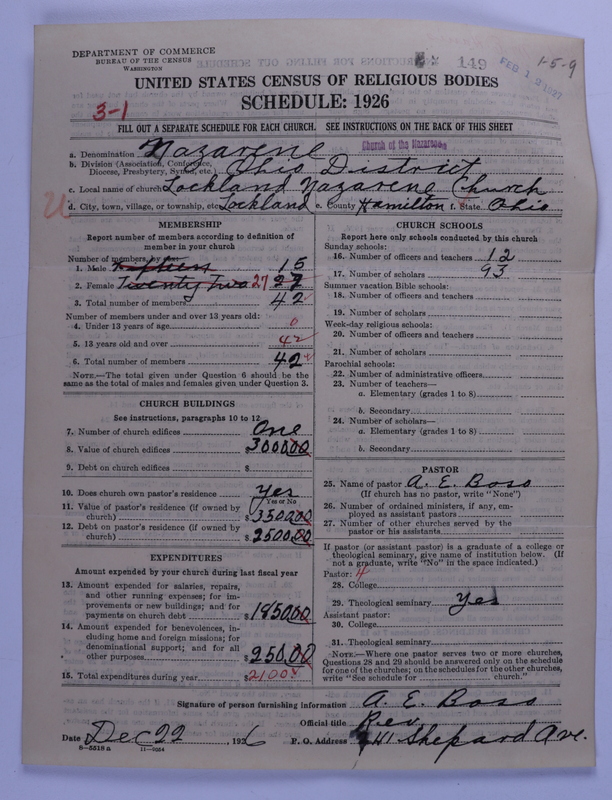 DEPARTMENT OF COMMERCE
BUREAU OF THE CENSUS
WASHINGTON
149
FEB 1 2 1927
1-5-9
UNITED STATES CENSUS OF RELIGIOUS BODIES
SCHEDULE: 1926
3-1
FILL OUT A SEPARATE SCHEDULE FOR EACH CHURCH. SEE INSTRUCTIONS ON THE BACK OF THIS SHEET
Church of the Nazarene
a. Denomination Nazarene
b. Division (Association, Conference, Diocese, Presbytery, Synod, etc.) Ohio District
c. Local name of church Lockland Nazarene Church
d. City, town, village, or township, etc. Lockland e. County Hamilton f. State Ohio
MEMBERSHIP
Report number of members according to definition of member in your church
Number of members by sex:
1. Male Fifteen 15
2. Female Twenty Two 27 27
3. Total number of members 42
Number of members under and over 13 years old:
4. Under 13 years of age 0
5. 13 years old and over 42
6. Total number of members 42
NOTE.—The total given under Question 6 should be the same as the total of males and females given under Question 3.
CHURCH BUILDINGS
See instructions, paragraphs 10 to 12
7. Number of church edifices One
8. Value of church edifices 3000.00
9. Debt on church edifices $
10. Does church own pastor's residence Yes
Yes or No
11. Value of pastor's residence (if owned by church) $3500.00
12. Debt on pastor's residence (if owned by church) $2500.00
EXPENDITURES
Amount expended by your church during last fiscal year
13. Amount expended for salaries, repairs, and other running expenses; for improvements or new buildings; and for payments on church debt $1850.00
14. Amount expended for benevolences, including home and foreign missions; for denominational support; and for all other purposes $250.00
15. Total expenditures during year $2100
CHURCH SCHOOLS
Report here only schools conducted by this church
Sunday schools:
16. Number of officers and teachers 12
17. Number of scholars 93
Summer vacation Bible schools:
18. Number of officers and teachers
19. Number of scholars
Week-day religious schools:
20. Number of officers and teachers
21. Number of scholars
Parochial schools:
22. Number of administrative officers
23. Number of teachers—
a. Elementary (grades 1 to 8)
b. Secondary
24. Number of scholars—
a. Elementary (grades 1 to 8)
b. Secondary
PASTOR
25. Name of pastor A. E. Boso
(If church has no pastor, write "None")
26. Number of ordained ministers, if any, employed as assistant pastors
27. Number of other churches served by the pastor or his assistants
If pastor (or assistant pastor) is a graduate of a college or theological seminary, give name of institution below. (If not a graduate, write "No" in the space indicated.)
Pastor: 4
28. College
29. Theological seminary Yes
Assistant pastor:
30. College
31. Theological seminary
NOTE.—Where one pastor serves two or more churches, Questions 28 and 29 should be answered only on the schedule for one of the churches; on the schedules for the other churches, write "See schedule for church."
Signature of person furnishing information A. E. Boso
Official title Rev.
Date Dec 22, 1926 P. O. Address 241 Shepard Ave.
8-5518 a 11-9054